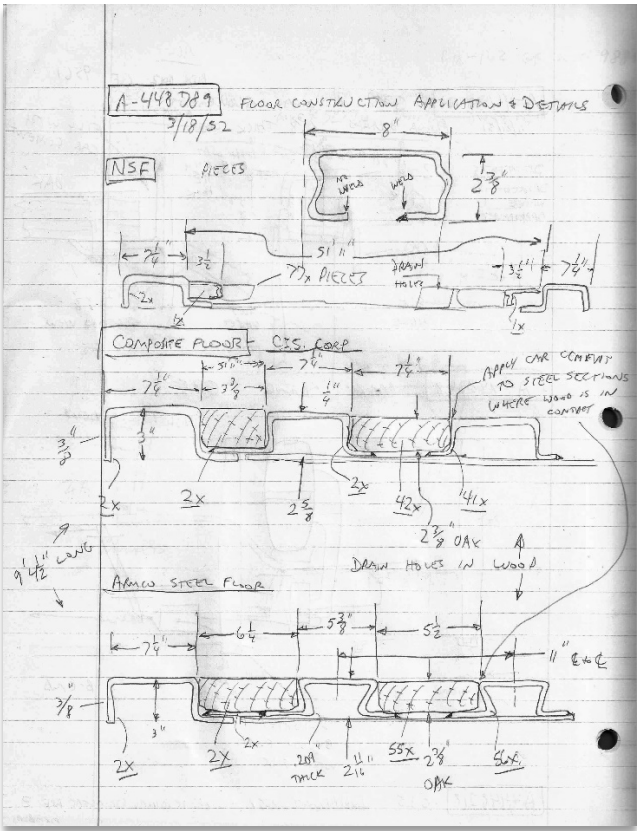 A-448789 FLOOR CONSTRUCTION APPLICATION & DETAILS
3/18/52
8"
NSF PIECES
NO WELD WELD
2 7/8"
51' 11"
7 1/4" 3 1/2 77x PIECES DRAIN HOLES 3 1/2" 7 1/4"
2x
1x 1x
COMPOSITE FLOOR - C.I.S. CORP
7 1/4" 3 3/8 7 1/4" 1/4" 7 1/4"
APPLY CAR CEMENT
TO STEEL SECTIONS
WHERE WOOD IS IN
CONTACT
3"
2x 2x 2 5/8 2x 42x 41x
2 3/8" OAK
9' 4 1/2" LONG
DRAIN HOLES IN WOOD
ARMCO STEEL FLOOR
7 1/4" 6 1/4 5 3/8" 5 1/2
11" ℄ to ℄
3/8" 3"
2x 2x 2x .209" THICK 2 11/16" 55x 2 3/8" OAK 56x